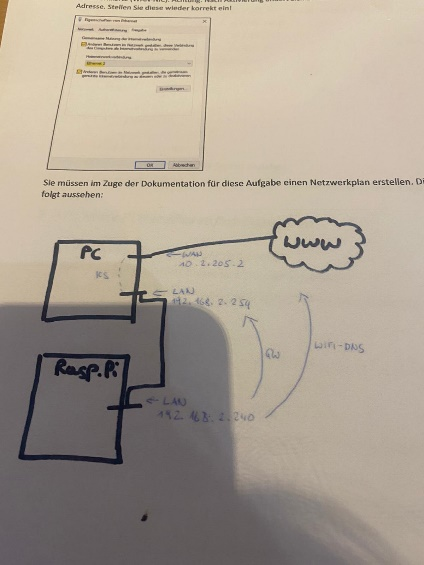 Adresse. Stellen Sie diese wieder korrekt ein!
Eigenschaften von Ethernet
Netzwerk Authentifizierung Freigabe
Gemeinsame Nutzung der Internetverbindung
Anderen Benutzern im Netzwerk gestatten, diese Verbindung
des Computers als Internetverbindung zu verwenden
Heimnetzwerkverbindung:
Ethernet 2
Anderen Benutzern im Netzwerk gestatten, die gemeinsam
genutzte Internetverbindung zu steuern oder zu deaktivieren
Einstellungen...
OK Abbrechen
Sie müssen im Zuge der Dokumentation für diese Aufgabe einen Netzwerkplan erstellen.
folgt aussehen:
PC
WWW
← WAN
10.2.205.2
← LAN
192.168.2.254
GW
WIFI-DNS
Rasp.Pi
← LAN
192.168.2.240